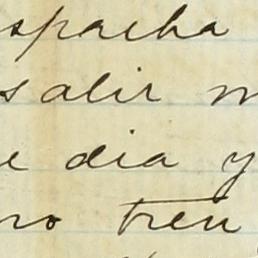 spacha
salir m
e dia y
ro tren